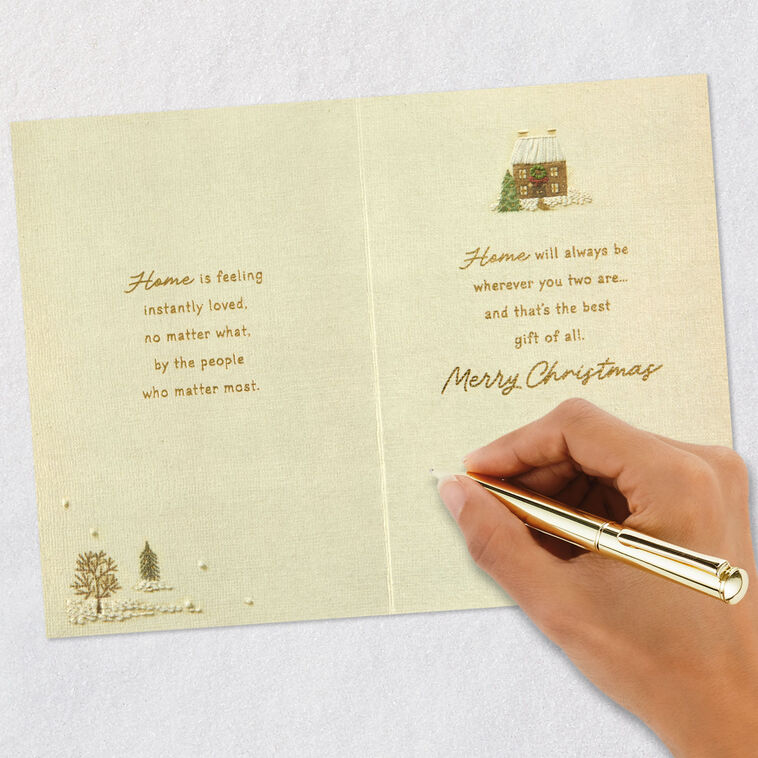 Home is feeling
instantly loved,
no matter what,
by the people
who matter most.
Home will always be
wherever you two are...
and that's the best
gift of all.
Merry Christmas